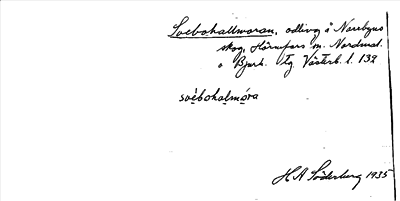 Svebohallmoran, odling å Norrbyns
skog, Hörnefors sn. Nordmal.
o Bjurh. tg Västerb. l. 132
svèbohalmóra
H A Söderberg 1935